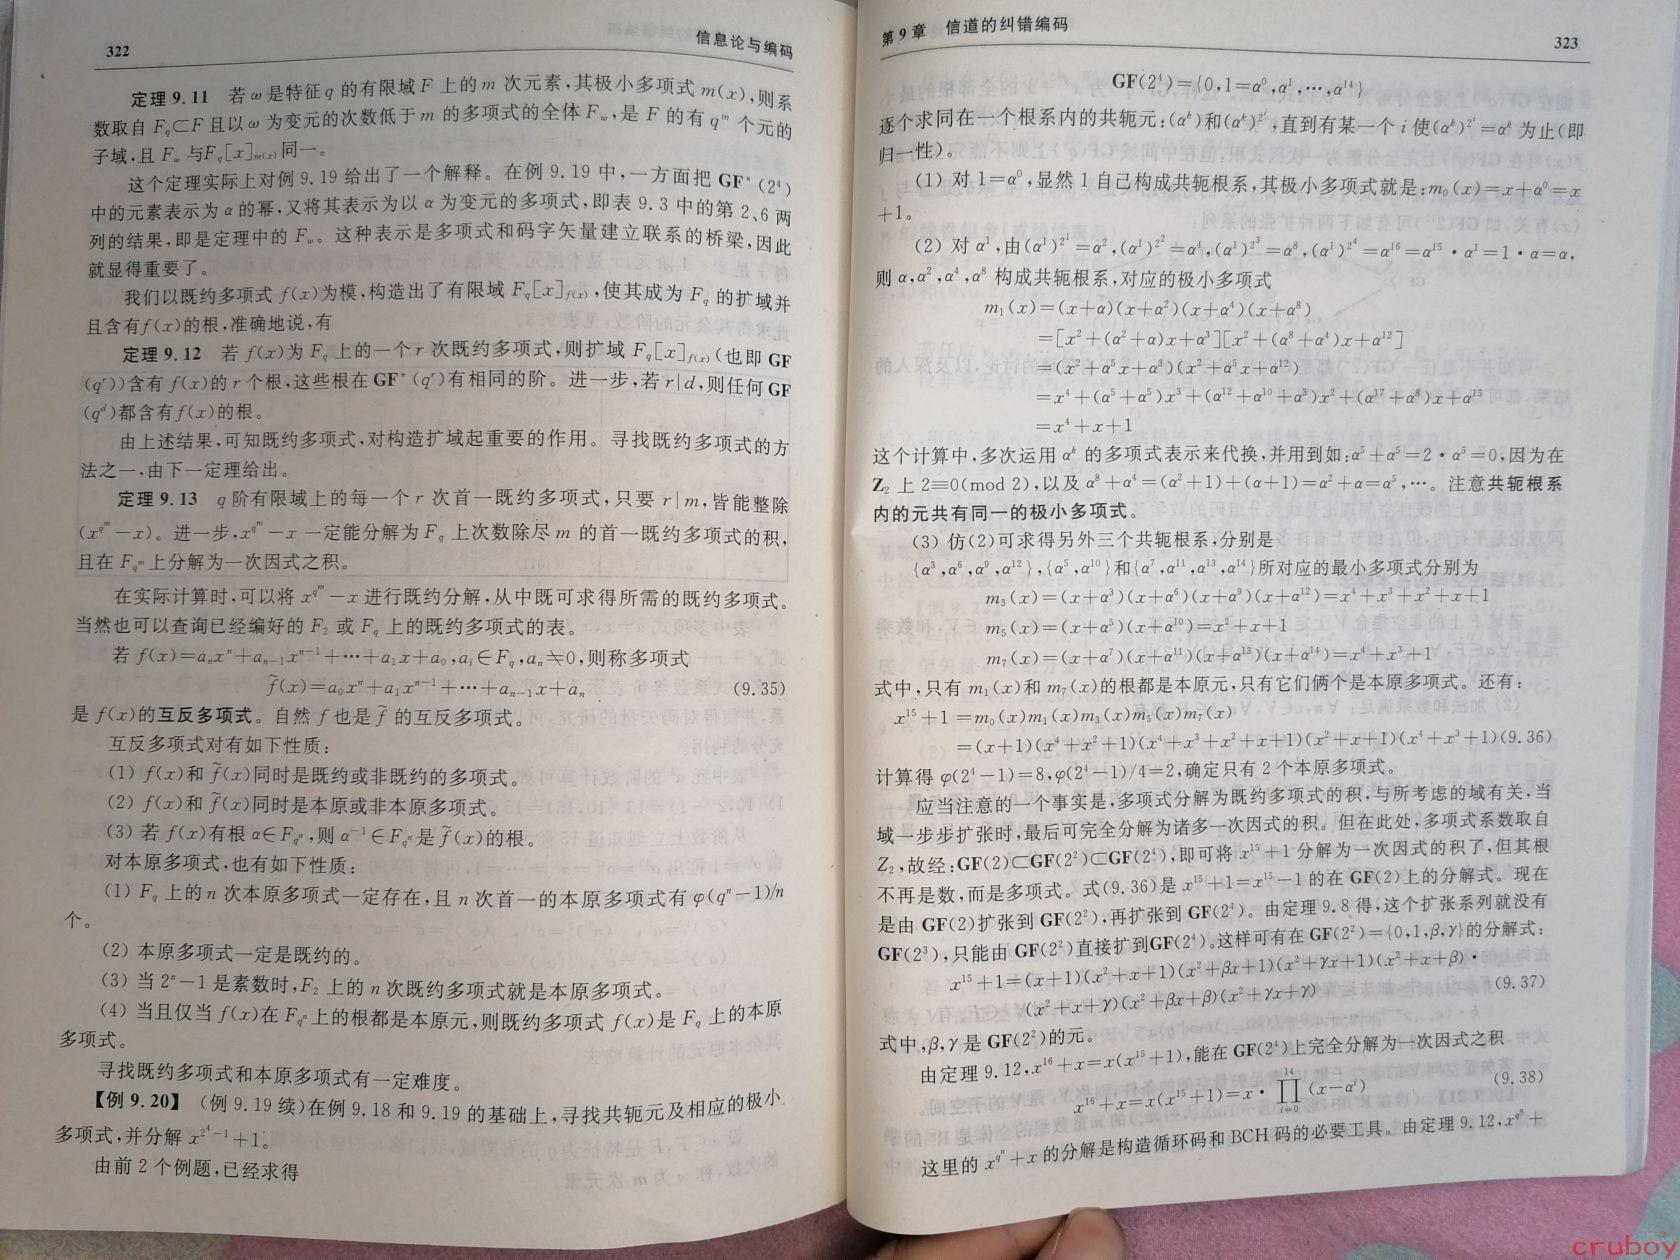 322
信息论与编码
定理9.11 若ω是特征q的有限域F上的m次元素,其极小多项式m(x),则系
数取自F_q⊂F且以ω为变元的次数低于m的多项式的全体F_ω,是F的有q^m个元的
子域,且F_ω与F_q[x]_{m(x)}同一。
这个定理实际上对例9.19给出了一个解释。在例9.19中,一方面把GF*(2⁴)
中的元素表示为α的幂,又将其表示为以α为变元的多项式,即表9.3中的第2、6两
列的结果,即是定理中的F_ω。这种表示是多项式和码字矢量建立联系的桥梁,因此
就显得重要了。
我们以既约多项式f(x)为模,构造出了有限域F_q[x]_{f(x)},使其成为F_q的扩域并
且含有f(x)的根,准确地说,有
定理9.12 若f(x)为F_q上的一个r次既约多项式,则扩域F_q[x]_{f(x)}(也即GF
(q^r))含有f(x)的r个根,这些根在GF*(q^r)有相同的阶。进一步,若r|d,则任何GF
(q^d)都含有f(x)的根。
由上述结果,可知既约多项式,对构造扩域起重要的作用。寻找既约多项式的方
法之一,由下一定理给出。
定理9.13 q阶有限域上的每一个r次首一既约多项式,只要r|m,皆能整除
(x^{q^m}-x)。进一步,x^{q^m}-x一定能分解为F_q上次数除尽m的首一既约多项式的积,
且在F_{q^m}上分解为一次因式之积。
在实际计算时,可以将x^{q^m}-x进行既约分解,从中既可求得所需的既约多项式。
当然也可以查询已经编好的F₂或F_q上的既约多项式的表。
若f(x)=a_nx^n+a_{n-1}x^{n-1}+⋯+a₁x+a₀,a_i∈F_q,a_n≒0,则称多项式
f̃(x)=a₀x^n+a₁x^{n-1}+⋯+a_{n-1}x+a_n (9.35)
是f(x)的互反多项式。自然f也是f̃的互反多项式。
互反多项式对有如下性质:
(1) f(x)和f̃(x)同时是既约或非既约的多项式。
(2) f(x)和f̃(x)同时是本原或非本原多项式。
(3) 若f(x)有根α∈F_{q^n},则α^{-1}∈F_{q^n}是f̃(x)的根。
对本原多项式,也有如下性质:
(1) F_q上的n次本原多项式一定存在,且n次首一的本原多项式有φ(q^n-1)/n
个。
(2) 本原多项式一定是既约的。
(3) 当2^n-1是素数时,F₂上的n次既约多项式就是本原多项式。
(4) 当且仅当f(x)在F_{q^n}上的根都是本原元,则既约多项式f(x)是F_q上的本原
多项式。
寻找既约多项式和本原多项式有一定难度。
【例9.20】 (例9.19续)在例9.18和9.19的基础上,寻找共轭元及相应的极小
多项式,并分解x^{2⁴-1}+1。
由前2个例题,已经求得
第9章 信道的纠错编码
323
GF(2⁴)={0,1=α⁰,α¹,⋯,α¹⁴}
逐个求同在一个根系内的共轭元:(α^k)和(α^k)^{2^i},直到有某一个i使(α^k)^{2^i}=α^k为止(即
归一性)。
(1) 对1=α⁰,显然1自己构成共轭根系,其极小多项式就是:m₀(x)=x+α⁰=x
+1。
(2) 对α¹,由(α¹)^{2¹}=α²,(α¹)^{2²}=α⁴,(α¹)^{2³}=α⁸,(α¹)^{2⁴}=α¹⁶=α¹⁵·α¹=1·α=α,
则α,α²,α⁴,α⁸构成共轭根系,对应的极小多项式
m₁(x)=(x+α)(x+α²)(x+α⁴)(x+α⁸)
=[x²+(α²+α)x+α³][x²+(α⁸+α⁴)x+α¹²]
=(x²+α⁵x+α³)(x²+α⁵x+α¹²)
=x⁴+(α⁵+α⁵)x³+(α¹²+α¹⁰+α³)x²+(α¹⁷+α⁸)x+α¹⁵
=x⁴+x+1
这个计算中,多次运用α^k的多项式表示来代换,并用到如:α⁵+α⁵=2·α⁵=0,因为在
Z₂上2≡0(mod 2),以及α⁸+α⁴=(α²+1)+(α+1)=α²+α=α⁵,⋯。注意共轭根系
内的元共有同一的极小多项式。
(3) 仿(2)可求得另外三个共轭根系,分别是
{α³,α⁶,α⁹,α¹²},{α⁵,α¹⁰}和{α⁷,α¹¹,α¹³,α¹⁴}所对应的最小多项式分别为
m₃(x)=(x+α³)(x+α⁶)(x+α⁹)(x+α¹²)=x⁴+x³+x²+x+1
m₅(x)=(x+α⁵)(x+α¹⁰)=x²+x+1
m₇(x)=(x+α⁷)(x+α¹¹)(x+α¹³)(x+α¹⁴)=x⁴+x³+1
式中,只有m₁(x)和m₇(x)的根都是本原元,只有它们俩个是本原多项式。还有:
x¹⁵+1=m₀(x)m₁(x)m₃(x)m₅(x)m₇(x)
=(x+1)(x⁴+x²+1)(x⁴+x³+x²+x+1)(x²+x+1)(x⁴+x³+1)(9.36)
计算得φ(2⁴-1)=8,φ(2⁴-1)/4=2,确定只有2个本原多项式。
应当注意的一个事实是,多项式分解为既约多项式的积,与所考虑的域有关,当
域一步步扩张时,最后可完全分解为诸多一次因式的积。但在此处,多项式系数取自
Z₂,故经:GF(2)⊂GF(2²)⊂GF(2⁴),即可将x¹⁵+1分解为一次因式的积了,但其根
不再是数,而是多项式。式(9.36)是x¹⁵+1=x¹⁵-1的在GF(2)上的分解式。现在
是由GF(2)扩张到GF(2²),再扩张到GF(2⁴)。由定理9.8得,这个扩张系列就没有
GF(2³),只能由GF(2²)直接扩到GF(2⁴)。这样可有在GF(2²)={0,1,β,γ}的分解式:
x¹⁵+1=(x+1)(x²+x+1)(x²+βx+1)(x²+γx+1)(x²+x+β)·
(x²+x+γ)(x²+βx+β)(x²+γx+γ) (9.37)
式中,β,γ是GF(2²)的元。
由定理9.12,x¹⁶+x=x(x¹⁵+1),能在GF(2⁴)上完全分解为一次因式之积
x¹⁶+x=x(x¹⁵+1)=x·∏_{i=0}^{14}(x-α^i) (9.38)
这里的x^{q^n}+x的分解是构造循环码和BCH码的必要工具。由定理9.12,x^{q^n}+
cruboy